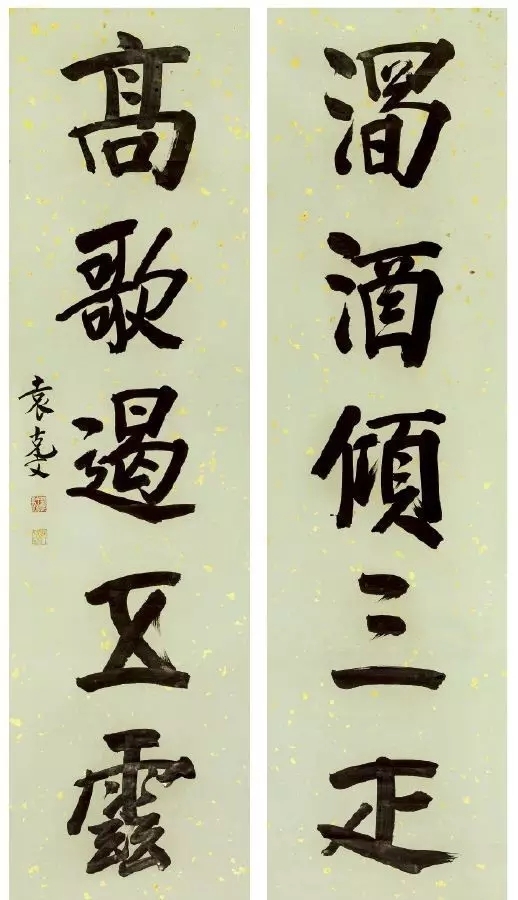 酒傾三疋
高歌遏五雲
袁克文